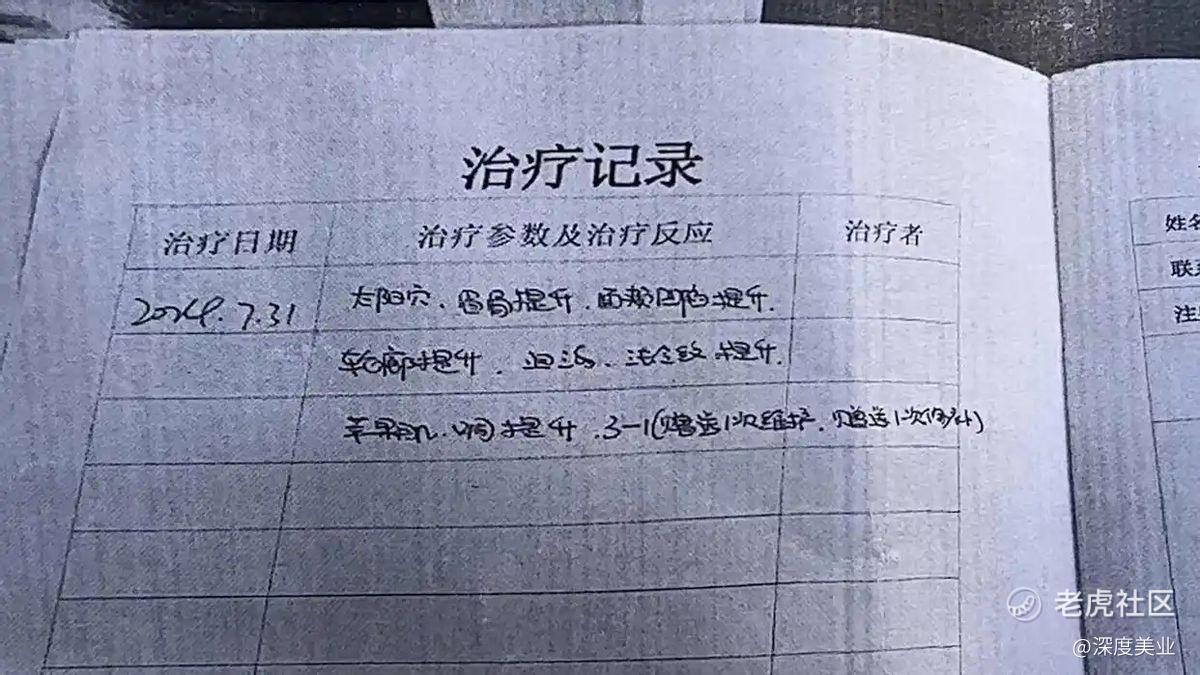 治疗记录
治疗日期 治疗参数及治疗反应 治疗者
2024.7.31 太阳穴、眉眉提升、面颊凹陷提升.
轮廓提升、泪沟、法令纹提升.
苹果肌、提升、3-1(赠送1次维护、赠送1次)
姓名
联系
注
老虎社区
@深度美业